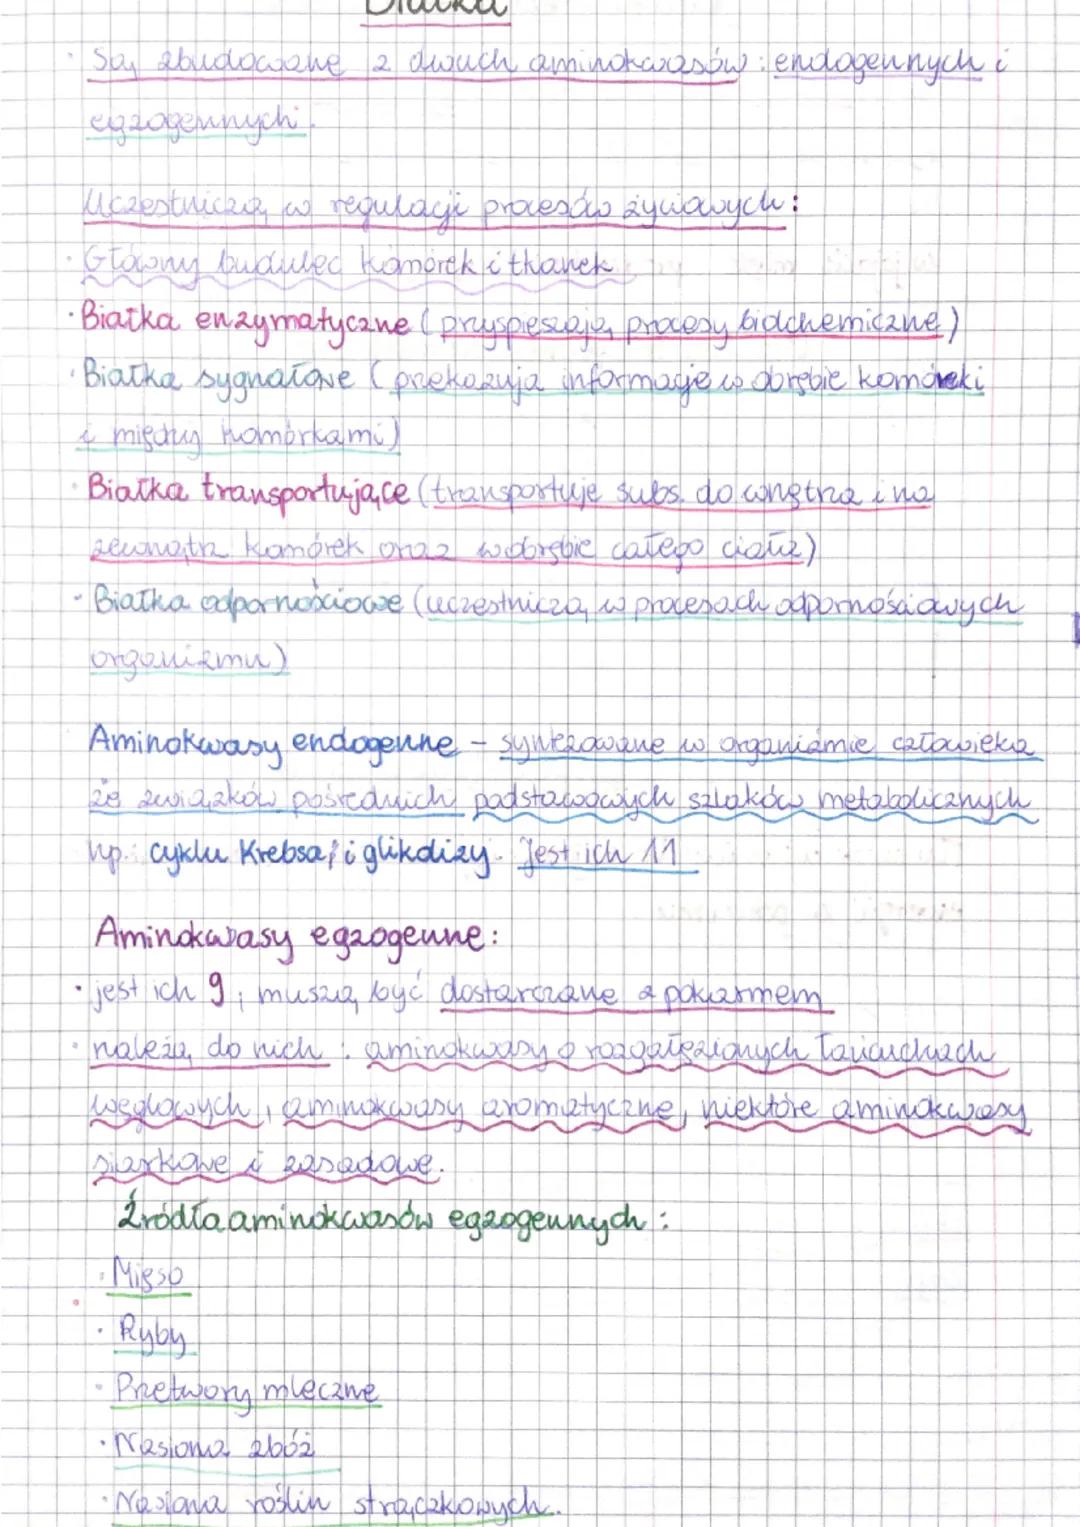 Białka
· Są zbudowane z dwuch aminokwasów: endogennych i
egzogennych.
Uczestniczą w regulacji procesów życiowych:
· Główny budulec komórek i tkanek
· Białka enzymatyczne (przyspieszają procesy biochemiczne)
· Białka sygnałowe (przekazują informacje w obrębie komórki
i między komórkami)
· Białka transportujące (transportuje subs. do wnętrza i na
zewnątrz komórek oraz w obrębie całego ciała)
· Białka odpornościowe (uczestniczą w procesach odpornościowych
organizmu)
Aminokwasy endogenne - syntezowane w organizmie człowieka
ze związków pośrednich podstawowych szlaków metabolicznych
np. cyklu Krebsa i glikolizy. Jest ich 11
Aminokwasy egzogenne:
· jest ich 9, muszą być dostarczane z pokarmem
· należą do nich: aminokwasy o rozgałęzionych łańcuchach
węglowych, aminokwasy aromatyczne, niektóre aminokwasy
siarkowe i zasadowe.
Źródła aminokwasów egzogennych:
· Mięso
· Ryby
· Przetwory mleczne
· Nasiona zbóż
· Nasiona roślin strączkowych.